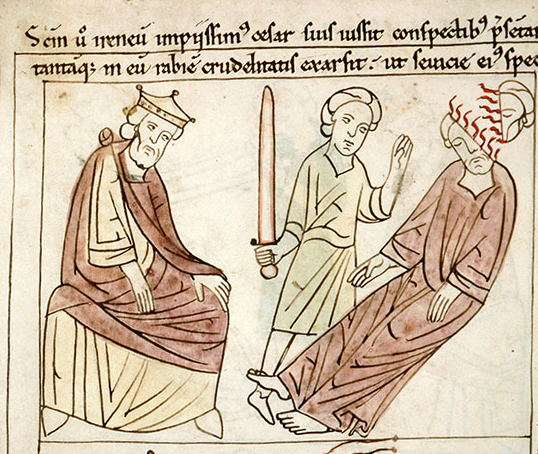 Scm̄ ū ireneū impiissim᷒ cesar suis iussit conspectib᷒ p̄sētar
tantāq; in eū rabiē crudelitatis exarsit· ut seuicie ei᷒ spec